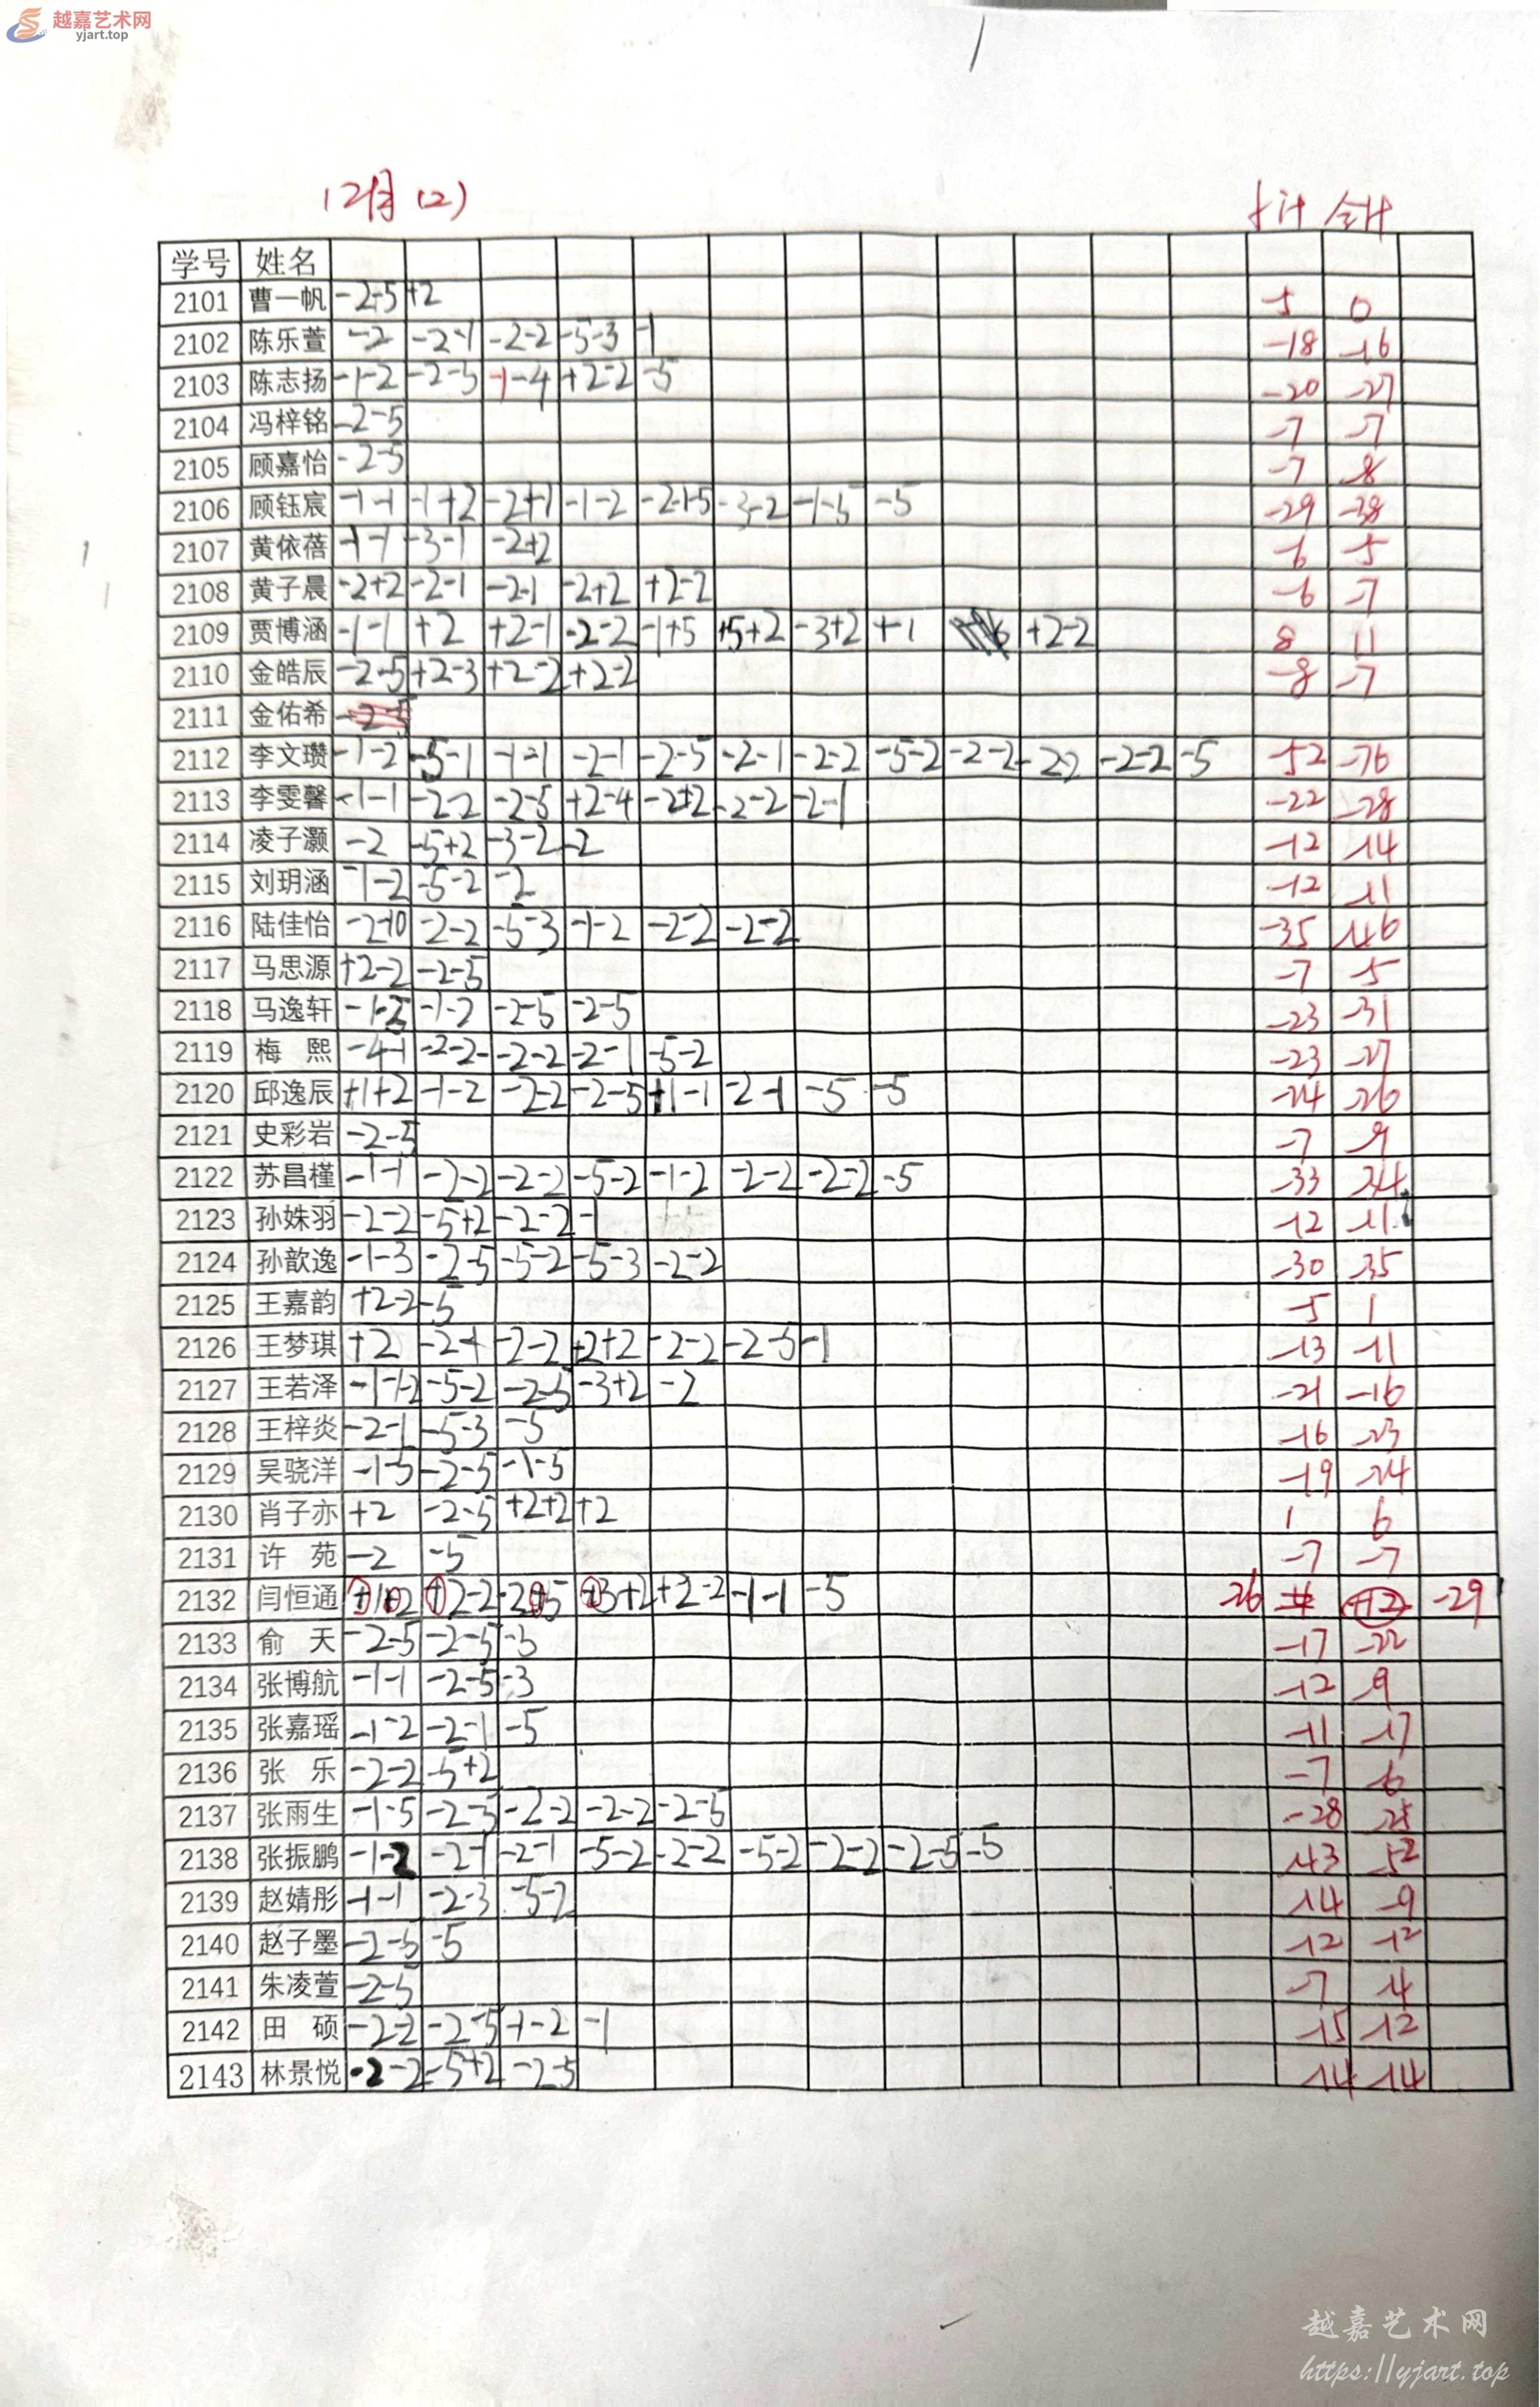 越嘉艺术网
yjart.top
12月(2)
小计 合计
学号 姓名
2101 曹一帆 -2-5 +2 -5 0
2102 陈乐萱 -2 -2-1 -2-2 -5-3 -1 -18 -16
2103 陈志扬 -1-2 -2-5 -1-4 +2-2 -5 -20 -27
2104 冯梓铭 -2-5 -7 -7
2105 顾嘉怡 -2-5 -7 -8
2106 顾钰宸 -1-1 -1+2 -2+1 -1-2 -2-1-5 -3-2 -1-5 -5 -29 -38
2107 黄依蓓 -1-1 -3-1 -2+2 -6 -5
2108 黄子晨 -2+2 -2-1 -2-1 -2+2 +2-2 -6 -7
2109 贾博涵 -1-1 +2 +2-1 -2-2 -1+5 +5+2 -3+2 +1 +2-2 8 11
2110 金皓辰 -2-5 +2-3 +2-2 +2-2 -8 -7
2111 金佑希 -2-5
2112 李文瓒 -1-2 -5-1 -1-1 -2-1 -2-5 -2-1 -2-2 -5-2 -2-2 -2-2 -2-2 -5 -52 -76
2113 李雯馨 -1-1 -2-2 -2-5 +2-4 -2+2 -2-2 -2-1 -22 -28
2114 凌子灏 -2 -5+2 -3-2 -2 -12 -14
2115 刘玥涵 -1-2 -5-2 -2 -12 -11
2116 陆佳怡 -2-10 -2-2 -5-3 -1-2 -2-2 -2-2 -35 -46
2117 马思源 +2-2 -2-5 -7 -5
2118 马逸轩 -1-5 -1-2 -2-5 -2-5 -23 -31
2119 梅 熙 -4-1 -2-2 -2-2 -2-1 -5-2 -23 -27
2120 邱逸辰 +1+2 -1-2 -2-2 -2-5 +1-1 -2-1 -5 -5 -24 -26
2121 史彩岩 -2-5 -7 -9
2122 苏昌槿 -1-1 -2-2 -2-2 -5-2 -1-2 -2-2 -2-2 -5 -33 -34
2123 孙姝羽 -2-2 -5+2 -2-2 -1 -12 -11
2124 孙歆逸 -1-3 -2-5 -5-2 -5-3 -2-2 -30 -35
2125 王嘉韵 +2-2 -5 -5 1
2126 王梦琪 +2 -2-1 -2-2 +2+2 -2-2 -2-5 -1 -13 -11
2127 王若泽 -1-1-2 -5-2 -2-5 -3+2 -2 -21 -16
2128 王梓炎 -2-1 -5-3 -5 -16 -23
2129 吴骁洋 -1-5 -2-5 -1-5 -19 -24
2130 肖子亦 +2 -2-5 +2+2 +2 1 6
2131 许 苑 -2 -5 -7 -7
2132 闫恒通 +2-2 -1-1 -5 -26 +2 -29
2133 俞 天 -2-5 -2-5 -3 -17 -22
2134 张博航 -1-1 -2-5 -3 -12 -9
2135 张嘉瑶 -1-2 -2-1 -5 -11 -17
2136 张 乐 -2-2 -5+2 -7 -6
2137 张雨生 -1-5 -2-5 -2-2 -2-2 -2-5 -28 -25
2138 张振鹏 -1-2 -2-1 -2-1 -5-2 -2-2 -5-2 -2-2 -2-5 -5 -43 -52
2139 赵婧彤 -1-1 -2-3 -5-2 -14 -9
2140 赵子墨 -2-5 -5 -12 -12
2141 朱凌萱 -2-5 -7 -4
2142 田 硕 -2-2 -2-5 -1-2 -1 -15 -12
2143 林景悦 -2-2 -5+2 -2-5 -14 -14
越嘉艺术网
https://yjart.top